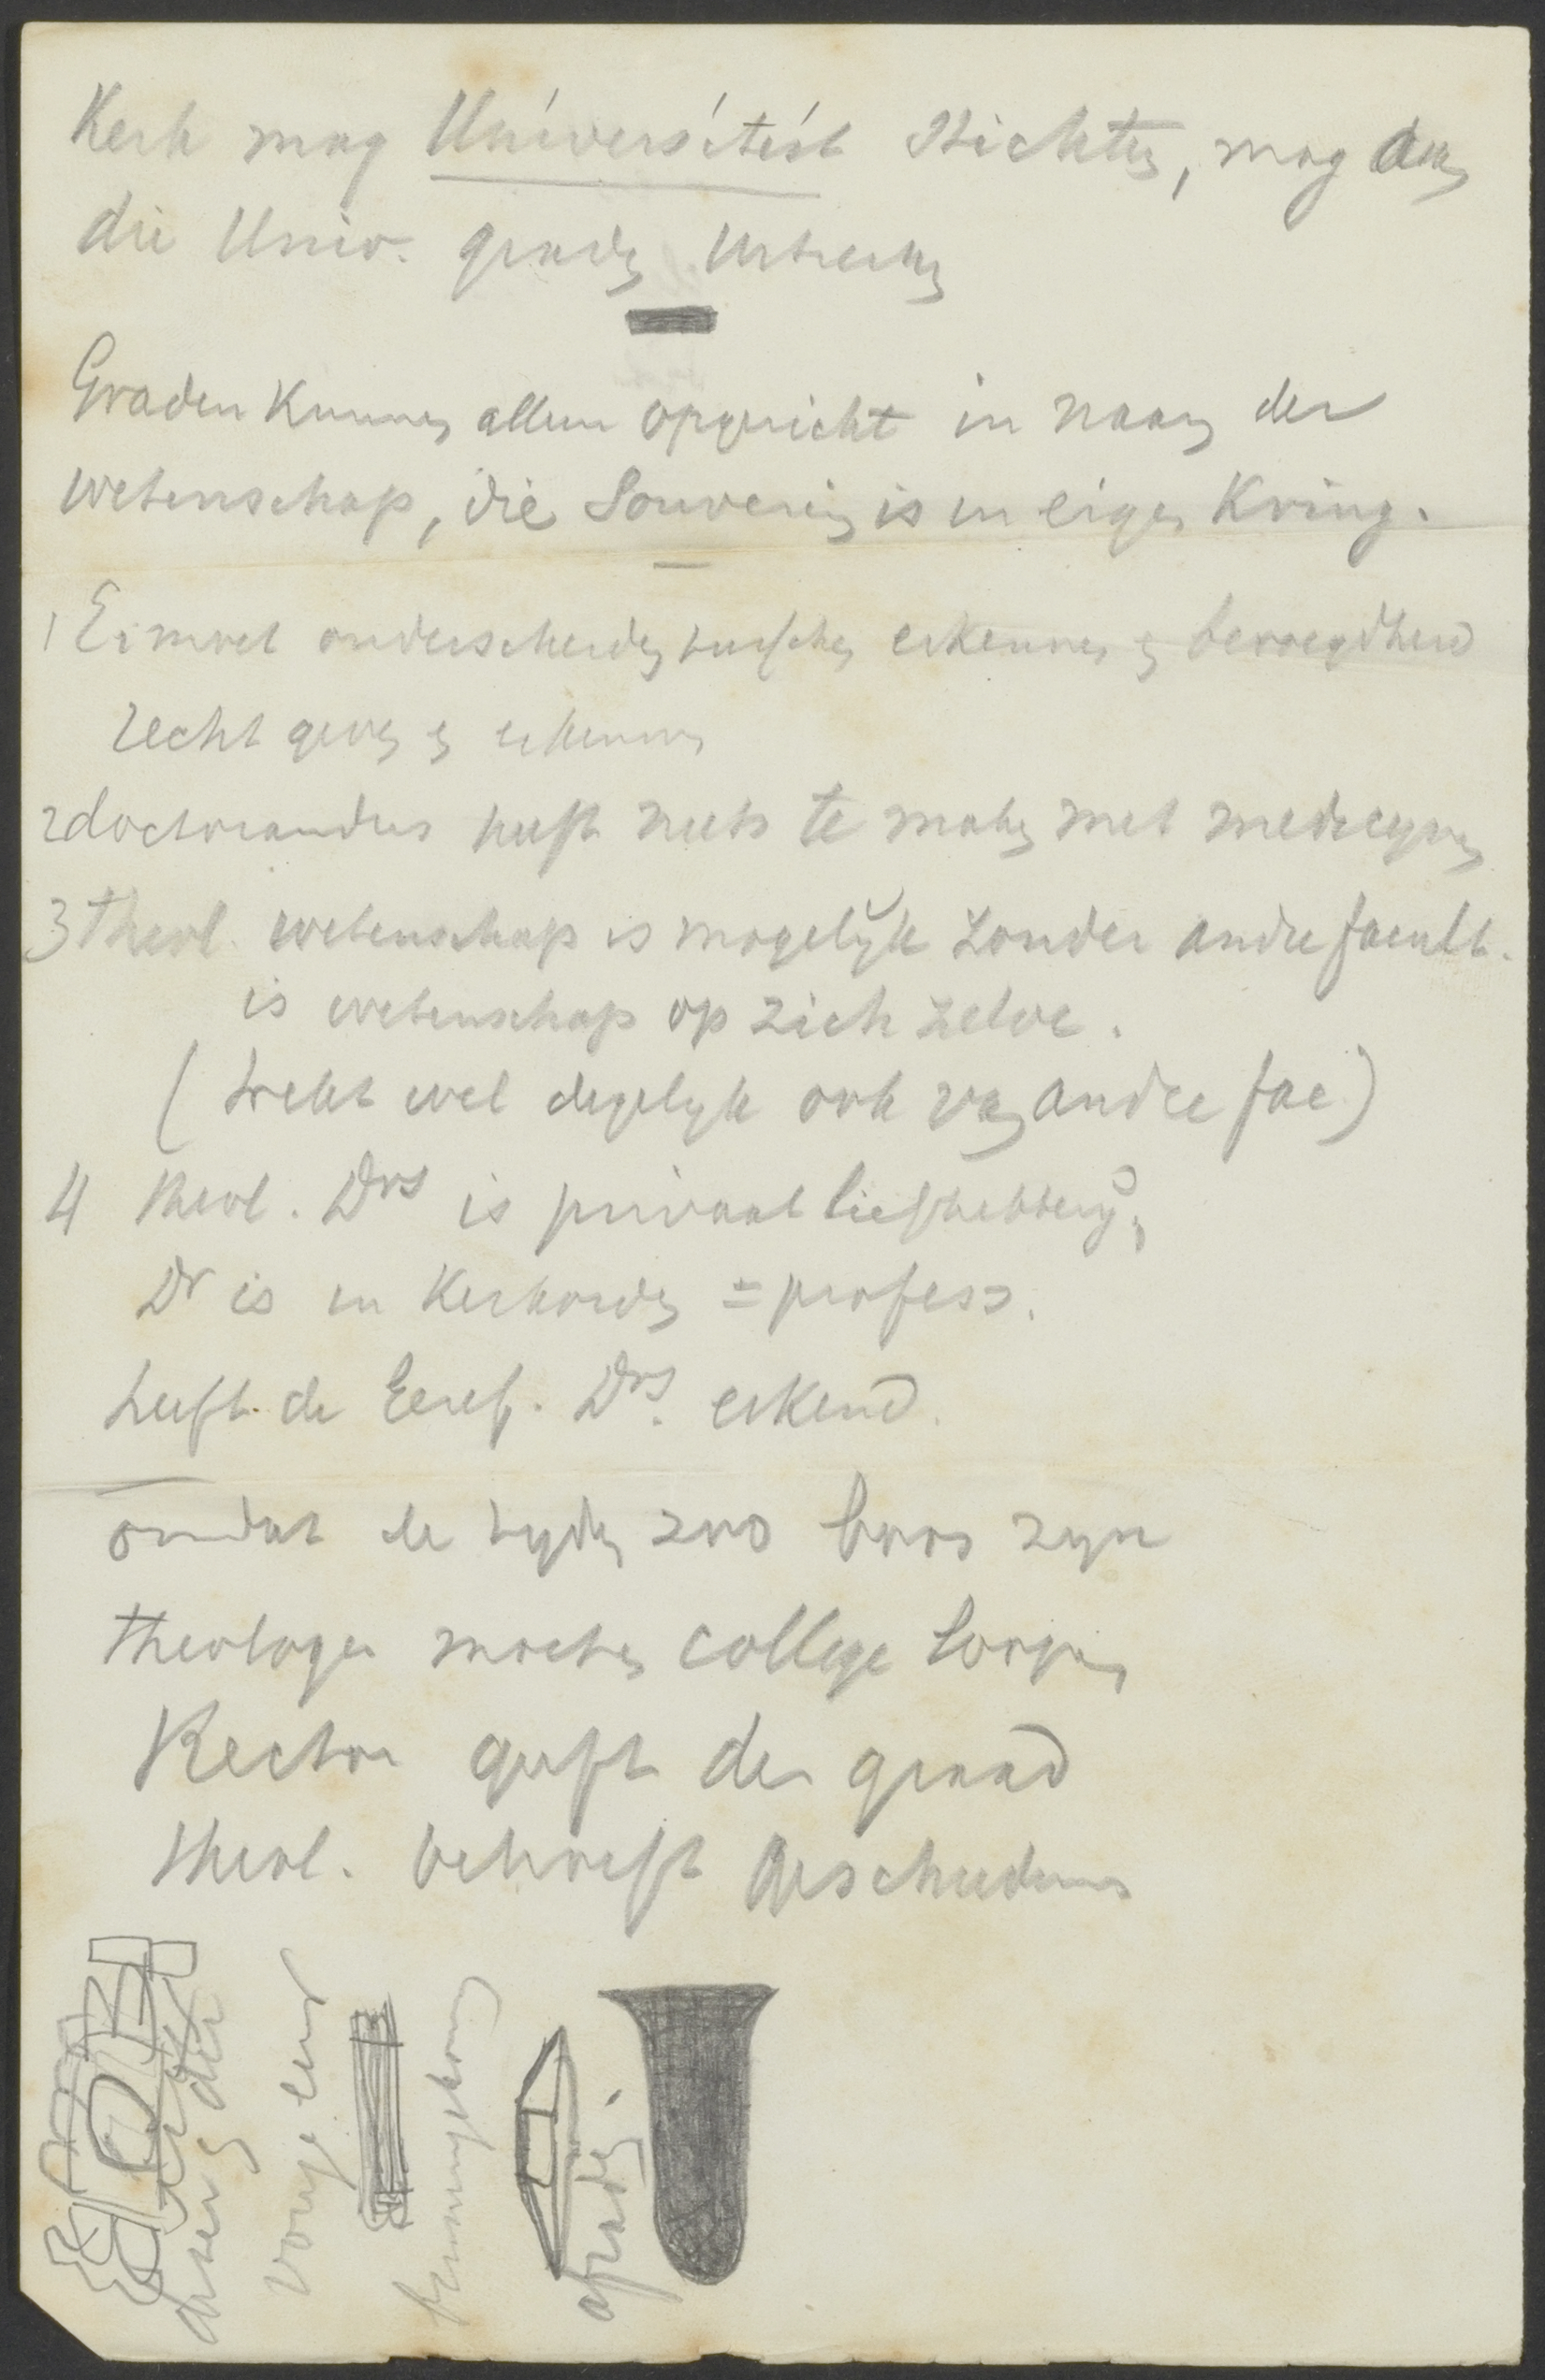 Kerk mag Universiteit Stichten, mag dan
die Univ. graden Uitreiken
Graden Kunnen alleen opgericht in naam der
wetenschap, die Souverein is in eigen Kring.
1 Er moet onderscheiden tusschen erkennen en bevoegdheid
recht geven en erkennen
2 doctorandus heeft niets te maken met medicynen
3 theol. wetenschap is mogelijk zonder andre facult.
is wetenschap op zich zelve.
(trekt wel degelyk ook van andre fac.)
4 theol. Drs is privaat liefhebberij,
Dr is in Kerkorden = profess.
heeft de Geref. Drs. erkend.
omdat de tyden zoo boos zyn
theologen moeten college loopen
Rector geeft den graad
theol. behoeft geschiedenis
graden